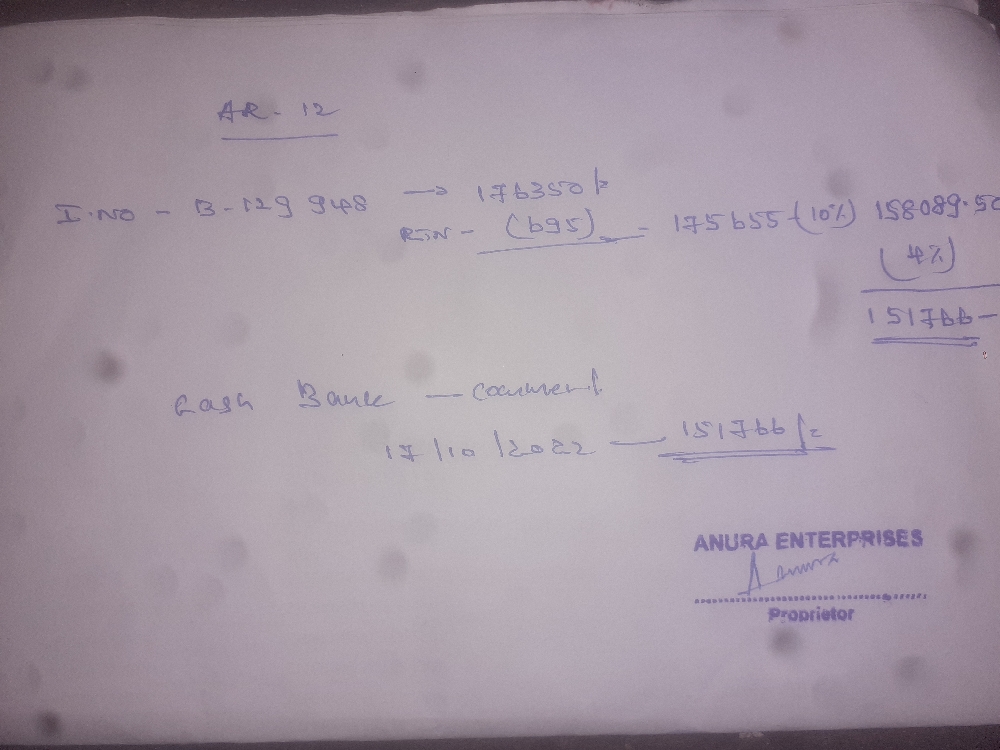 AR - 12
I.NO - B-129 948 → 176350/=
RTN - (695) - 175655-(10%) 158089.50
(4%)
151766-
Cash Bank —
17/10/2022 — 151766/=
ANURA ENTERPRISES
Proprietor